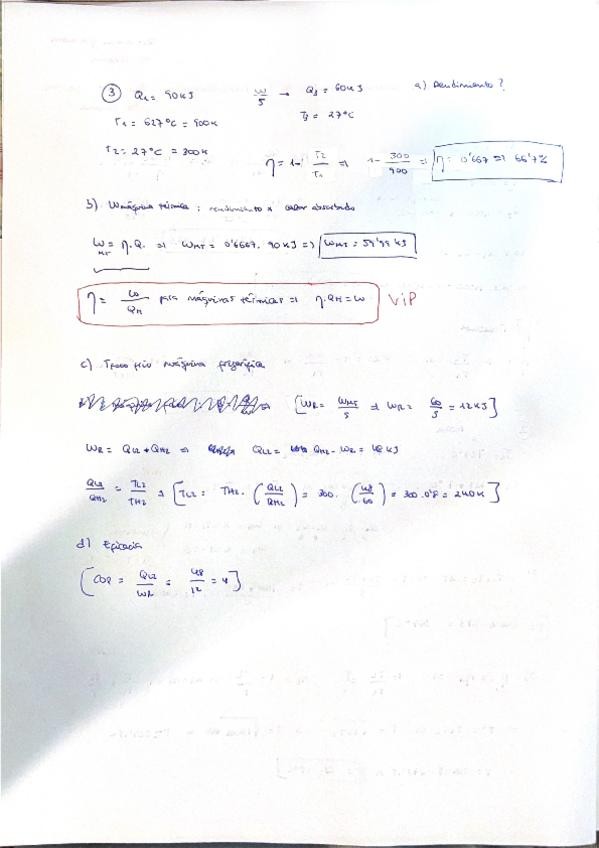 ③ Q1 = 90KJ W/5 → Q3 = 60KJ a) Rendimiento?
T1 = 627°C = 900K T3 = 27°C
T2 = 27°C = 300K
η = 1- T2/T1 => 1- 300/900 => η = 0'667 => 66'7%
b) Wmáquina térmica: rendimiento x calor absorbido
W MT = η·Q. => WMT = 0'6667. 90KJ => WMT = 59'99 KJ
η = W/QH para máquinas térmicas => η·QH = W VIP
c) Tfoco frío máquina frigorífica
[WR = WMT/5 => WR = 60/5 = 12KJ]
WR = QL2 + QH2 => QL2 = QH2 - WR = 48 KJ
QL2/QH2 = TL2/TH2 => [TL2 = TH2 · (QL2/QH2) = 300. (48/60) = 300·0'8 = 240K]
d) Eficacia
[COP = QL2/WR = 48/12 = 4]